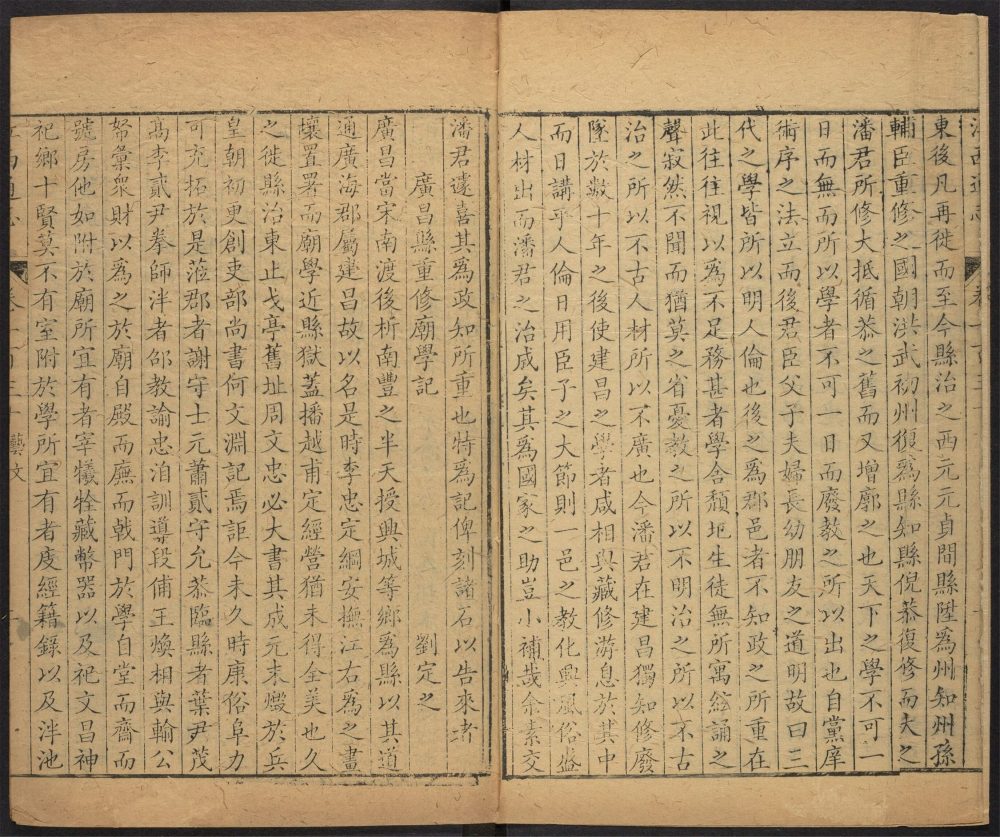 江西通志 卷一百三十
東後凡再徙而至今縣治之西元元貞間縣陞為州知州孫
輔臣重修之國朝洪武初州復為縣知縣倪恭復修而大之
潘君所修大抵循恭之舊而又增廓之也天下之學不可一
日而無而所以學者不可一日而廢教之所以出也自黨庠
術序之法立而後君臣父子夫婦長幼朋友之道明故曰三
代之學皆所以明人倫也後之為郡邑者不知政之所重在
此往往視以為不足務甚者學舍頽圮生徒無所寓絃誦之
聲寂然不聞而猶莫之省憂教之所以不明治之所以不古
治之所以不古人材所以不廣也今潘君在建昌獨知修廢
墜於數十年之後使建昌之學者咸相與藏修游息於其中
而日講乎人倫日用臣子之大節則一邑之教化興風俗盛
人材出而潘君之治成矣其為國家之助豈小補哉余素交
潘君遽喜其為政知所重也特為記俾刻諸石以告來者
廣昌縣重修廟學記 劉定之
廣昌當宋南渡後析南豐之半天授興城等鄉為縣以其道
通廣海郡屬建昌故以名是時李忠定綱安撫江右為之畫
壤置署而廟學近縣獄蓋播越甫定經營猶未得全美也久
之徙縣治東止戈亭舊址周文忠必大書其成元末燬於兵
皇朝初更創吏部尚書何文淵記焉詎今未久時康俗阜力
可充拓於是蒞郡者謝守士元蕭貳守允恭臨縣者葉尹茂
高李貳尹拳師泮者邵教諭忠洎訓導段俌王煥相與輸公
帑彙衆財以為之於廟自殿而廡而戟門於學自堂而齋而
號房他如附於廟所宜有者宰犧牲藏幣器以及祀文昌神
祀鄉十賢莫不有室附於學所宜有者庋經籍錄以及泮池
江西通志 卷一百三十 藝文